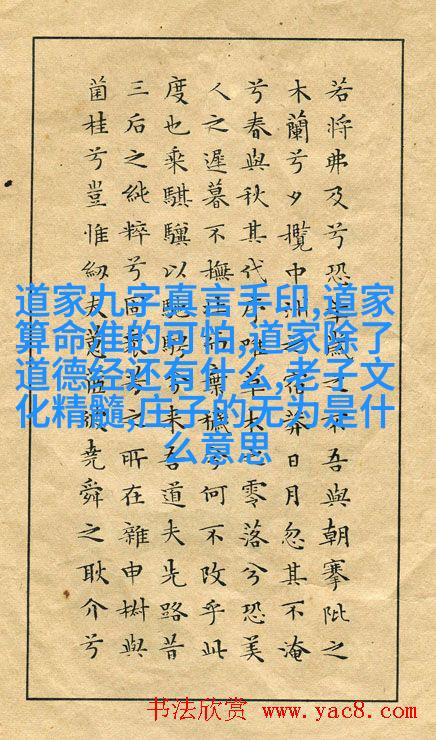 若將弗及兮恐年歲之不吾與朝搴阰之
木蘭兮夕攬中洲之宿莽日月忽其不淹
兮春與秋其代序唯草木之零落兮恐美
人之遲暮不撫壯而棄穢兮何不改乎此
度也乘騏驥以馳騁兮來吾道夫先路昔
三后之純粹兮固衆芳之所在雜申椒與
菌桂兮豈惟紉夫蕙茝彼堯舜之耿介兮
道家九字真言手印,道家
算命准的可怕,道家除了
道德经还有什么,老子文
化精髓,庄子的无为是什
么意思
书法欣赏 www.yac8.com